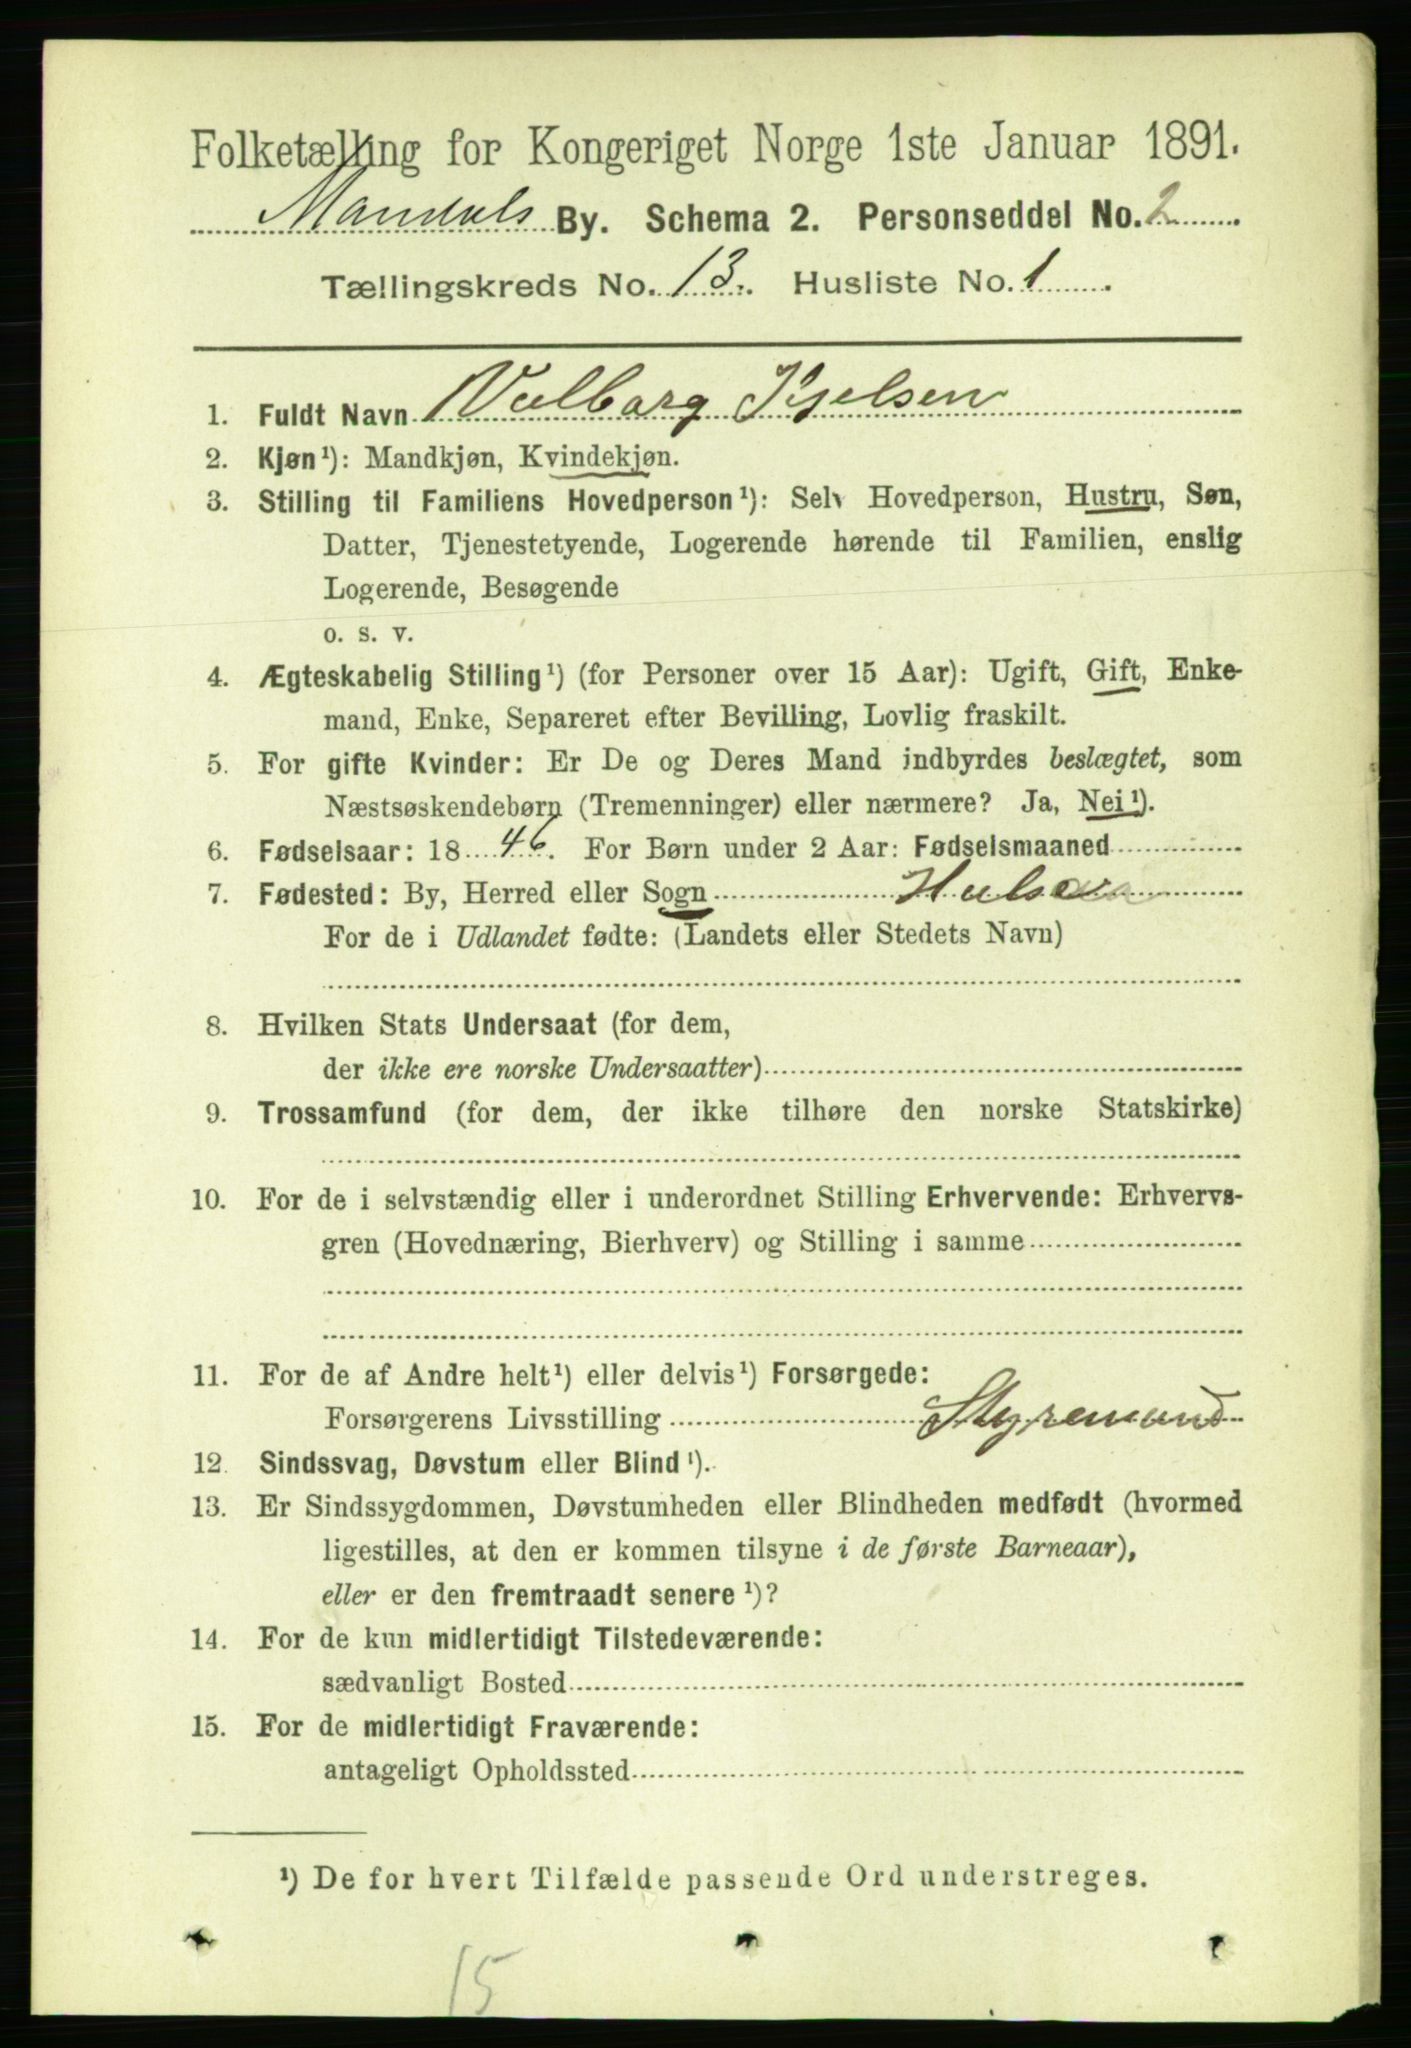 Folketælling for Kongeriget Norge 1ste Januar 1891.
Mandals By. Schema 2. Personseddel No. 2
Tællingskreds No. 13. Husliste No. 1
1. Fuldt Navn Valborg Kjelsen
2. Kjøn¹): Mandkjøn, Kvindekjøn.
3. Stilling til Familiens Hovedperson¹): Selv Hovedperson, Hustru, Søn,
Datter, Tjenestetyende, Logerende hørende til Familien, enslig
Logerende, Besøgende
o. s. v.
4. Ægteskabelig Stilling¹) (for Personer over 15 Aar): Ugift, Gift, Enke-
mand, Enke, Separeret efter Bevilling, Lovlig fraskilt.
5. For gifte Kvinder: Er De og Deres Mand indbyrdes beslægtet, som
Næstsøskendebørn (Tremenninger) eller nærmere? Ja, Nei¹).
6. Fødselsaar: 1846. For Børn under 2 Aar: Fødselsmaaned
7. Fødested: By, Herred eller Sogn
For de i Udlandet fødte: (Landets eller Stedets Navn)
8. Hvilken Stats Undersaat (for dem,
der ikke ere norske Undersaatter)
9. Trossamfund (for dem, der ikke tilhøre den norske Statskirke)
10. For de i selvstændig eller i underordnet Stilling Erhvervende: Erhvervs-
gren (Hovednæring, Bierhverv) og Stilling i samme
11. For de af Andre helt¹) eller delvis¹) Forsørgede:
Forsørgerens Livsstilling Styremand
12. Sindssvag, Døvstum eller Blind¹).
13. Er Sindssygdommen, Døvstumheden eller Blindheden medfødt (hvormed
ligestilles, at den er kommen tilsyne i de første Barneaar),
eller er den fremtraadt senere¹)?
14. For de kun midlertidigt Tilstedeværende:
sædvanligt Bosted
15. For de midlertidigt Fraværende:
antageligt Opholdssted
¹) De for hvert Tilfælde passende Ord understreges.
15